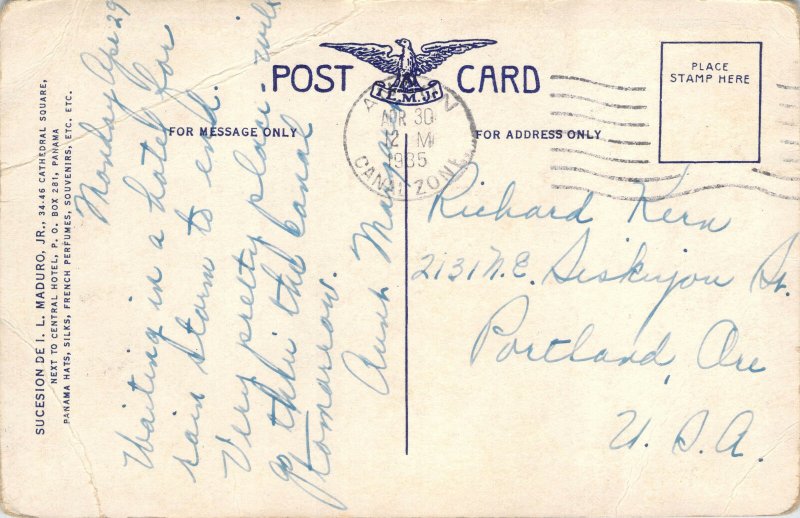 SUCESION DE I. L. MADURO, JR., 34-46 CATHEDRAL SQUARE,
NEXT TO CENTRAL HOTEL, P. O. BOX 281, PANAMA
PANAMA HATS, SILKS, FRENCH PERFUMES, SOUVENIRS, ETC. ETC.
POST CARD
I. L. M. Jr.
FOR MESSAGE ONLY
FOR ADDRESS ONLY
PLACE
STAMP HERE
APR 30
1935
CANAL ZONE
Monday Apr 29
Waiting in a hotel for
rain storm to end.
Very pretty place. will
go thru the Canal
tomorrow.
Aunt
Richard Kern
2131 N.E. Siskiyou St.
Portland, Ore
U. S. A.